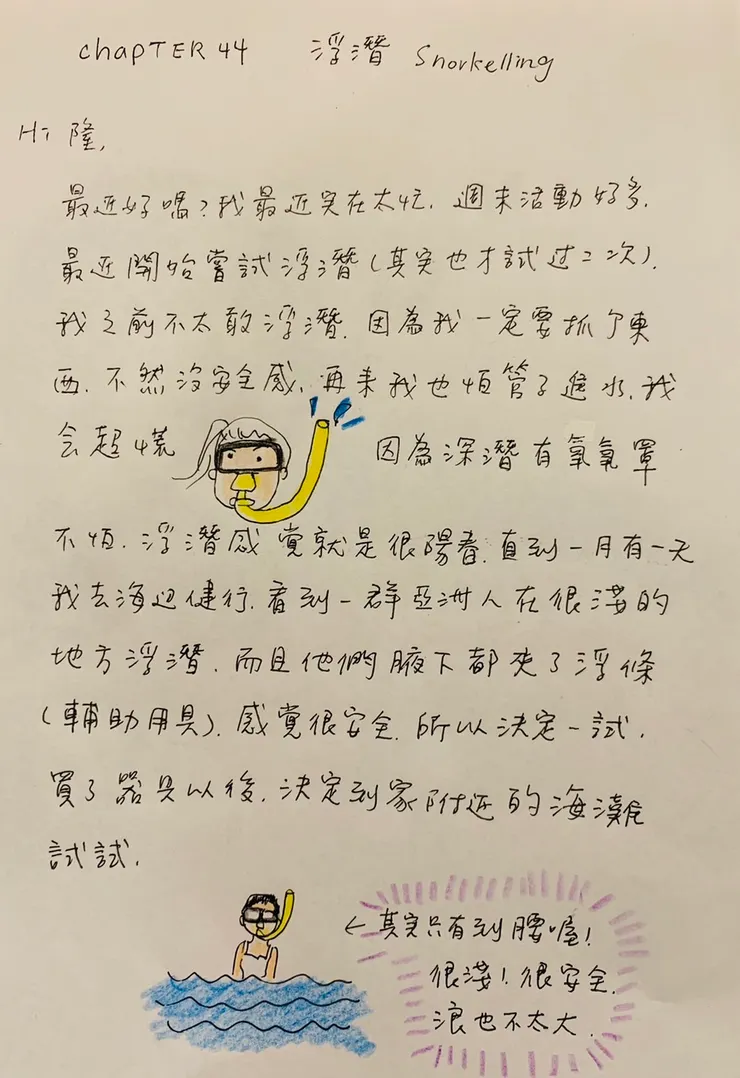 chapTER 44 浮潛 Snorkelling
Hi 隆,
最近好嗎?我最近実在太忙. 週末活動好多.
最近開始嘗試浮潛(其实也才試过二次).
我之前不太敢浮潛. 因為我一定要抓个東
西. 不然沒安全感. 再来我也怕管子進水. 我
会超慌 因為深潛有氧氣罩
不怕. 浮潛感覚就是很陽春. 直到一月有一天
我去海边健行. 看到一群亞洲人在很淺的
地方浮潛. 而且他們腋下都夾了浮條
(輔助用具). 感覚很安全. 所以決定一試.
買了器具以後. 決定到家附近的海灘
試試.
←其实只有到腰喔!
很淺! 很安全.
浪也不太大.